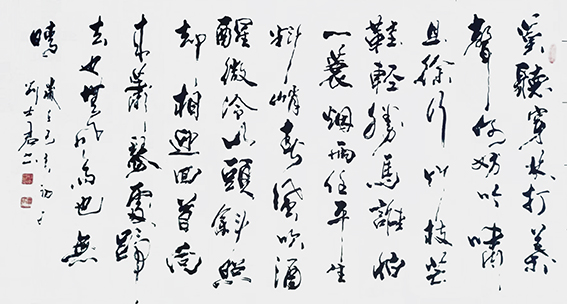 莫聽穿林打葉
聲何妨吟嘯
且徐行竹杖芒
鞋輕勝馬誰怕
一蓑烟雨任平生
料峭春風吹酒
醒微冷山頭斜照
却相迎回首向
來蕭瑟處歸
去也無風雨也無
晴